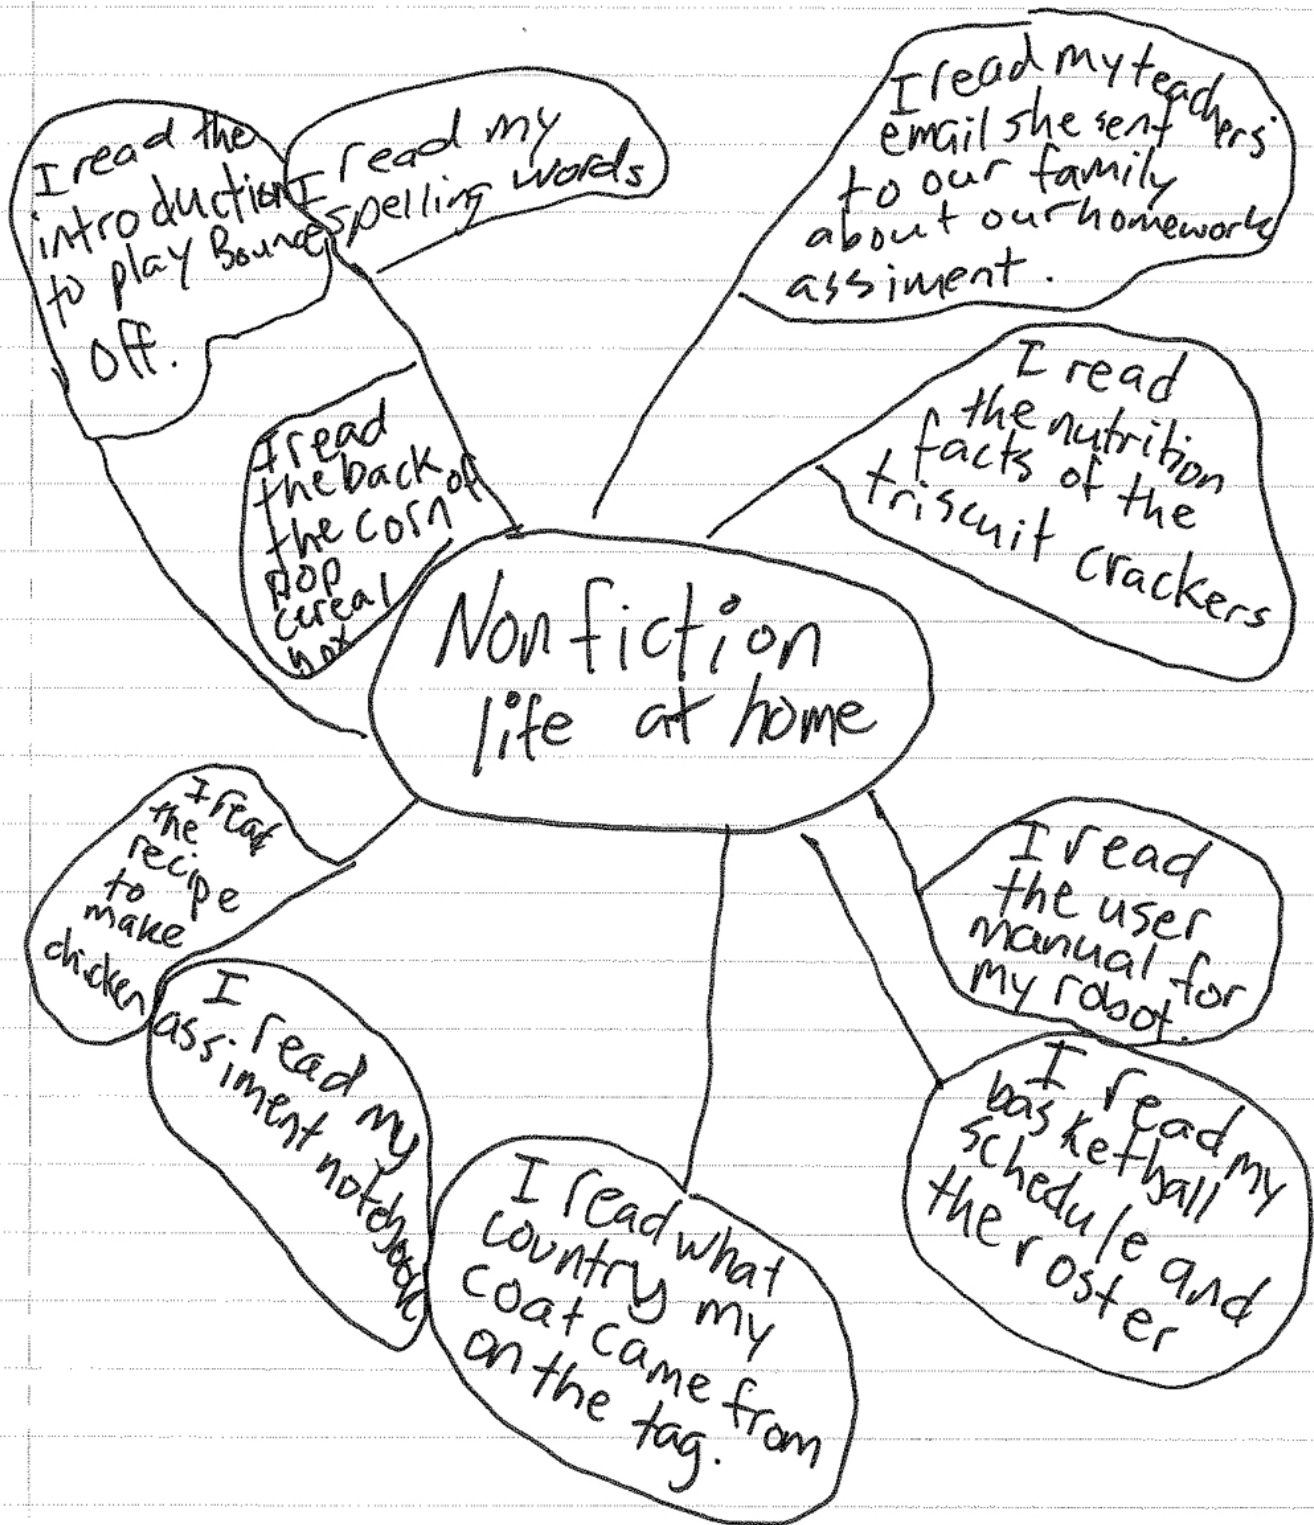 I read the
introduction
to play Bounce
off.
I read my
spelling words
I read my teachers
email she sent
to our family
about our homework
assiment.
I read
the nutrition
facts of the
triscuit crackers
I read
the back of
the corn
pop
cereal
box
Nonfiction
life at home
I read
the
recipe
to
make
chicken
I read my
assiment notebook
I read what
country my
coat came from
on the tag.
I read
the user
manual for
my robot.
I read my
basketball
schedule and
the roster